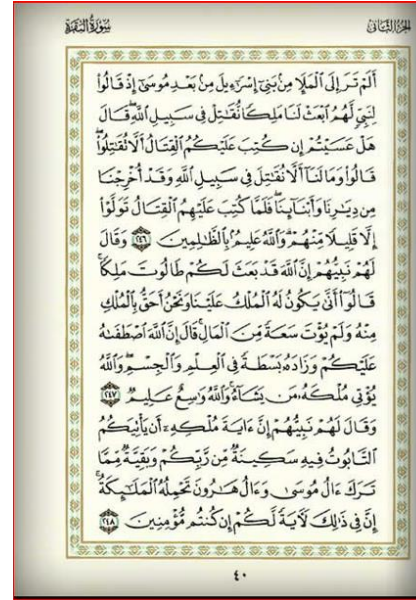 سُورَةُ البَقَرَةِ الجزء الثاني
أَلَمْ تَرَ إِلَى ٱلْمَلَإِ مِنۢ بَنِىٓ إِسْرَٰٓءِيلَ مِنۢ بَعْدِ مُوسَىٰٓ إِذْ قَالُوا۟
لِنَبِىٍّ لَّهُمُ ٱبْعَثْ لَنَا مَلِكًا نُّقَٰتِلْ فِى سَبِيلِ ٱللَّهِ ۖ قَالَ
هَلْ عَسَيْتُمْ إِن كُتِبَ عَلَيْكُمُ ٱلْقِتَالُ أَلَّا تُقَٰتِلُوا۟ ۖ
قَالُوا۟ وَمَا لَنَآ أَلَّا نُقَٰتِلَ فِى سَبِيلِ ٱللَّهِ وَقَدْ أُخْرِجْنَا
مِن دِيَٰرِنَا وَأَبْنَآئِنَا ۖ فَلَمَّا كُتِبَ عَلَيْهِمُ ٱلْقِتَالُ تَوَلَّوْا۟
إِلَّا قَلِيلًا مِّنْهُمْ ۗ وَٱللَّهُ عَلِيمٌۢ بِٱلظَّٰلِمِينَ ٢٤٦ وَقَالَ
لَهُمْ نَبِيُّهُمْ إِنَّ ٱللَّهَ قَدْ بَعَثَ لَكُمْ طَالُوتَ مَلِكًا ۚ
قَالُوٓا۟ أَنَّىٰ يَكُونُ لَهُ ٱلْمُلْكُ عَلَيْنَا وَنَحْنُ أَحَقُّ بِٱلْمُلْكِ
مِنْهُ وَلَمْ يُؤْتَ سَعَةً مِّنَ ٱلْمَالِ ۚ قَالَ إِنَّ ٱللَّهَ ٱصْطَفَىٰهُ
عَلَيْكُمْ وَزَادَهُۥ بَسْطَةً فِى ٱلْعِلْمِ وَٱلْجِسْمِ ۖ وَٱللَّهُ
يُؤْتِى مُلْكَهُۥ مَن يَشَآءُ ۚ وَٱللَّهُ وَٰسِعٌ عَلِيمٌ ٢٤٧
وَقَالَ لَهُمْ نَبِيُّهُمْ إِنَّ ءَايَةَ مُلْكِهِۦٓ أَن يَأْتِيَكُمُ
ٱلتَّابُوتُ فِيهِ سَكِينَةٌ مِّن رَّبِّكُمْ وَبَقِيَّةٌ مِّمَّا
تَرَكَ ءَالُ مُوسَىٰ وَءَالُ هَٰرُونَ تَحْمِلُهُ ٱلْمَلَٰٓئِكَةُ ۚ
إِنَّ فِى ذَٰلِكَ لَءَايَةً لَّكُمْ إِن كُنتُم مُّؤْمِنِينَ ٢٤٨
٤٠